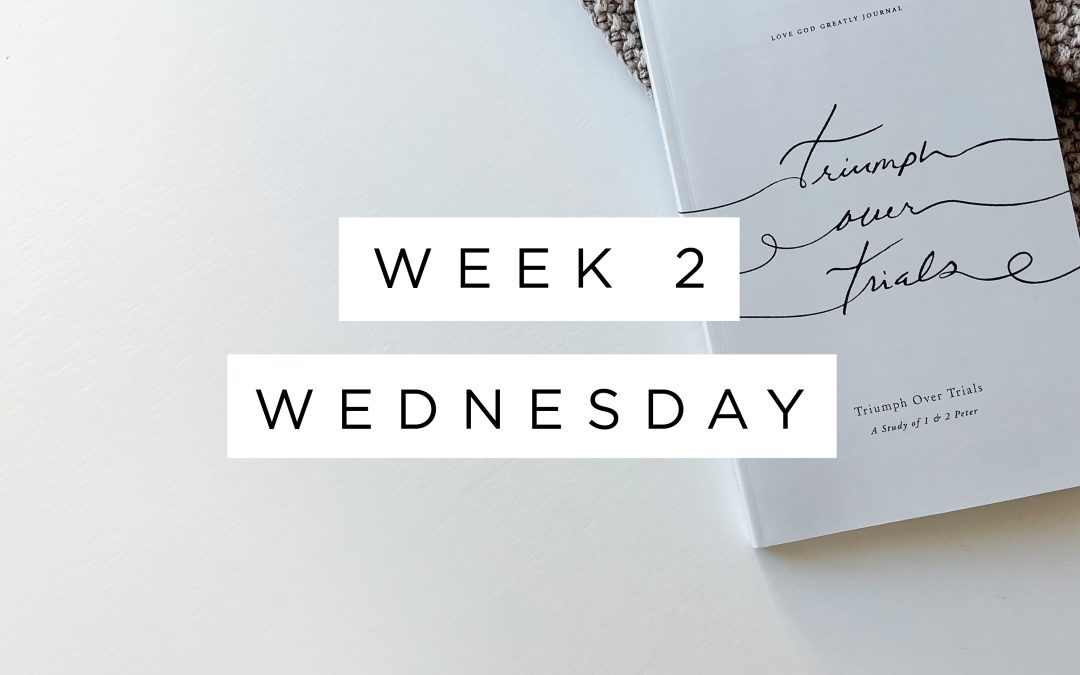 LOVE GOD GREATLY JOURNAL
Triumph
over
Trials
WEEK 2
WEDNESDAY
Triumph Over Trials
A Study of 1 & 2 Peter